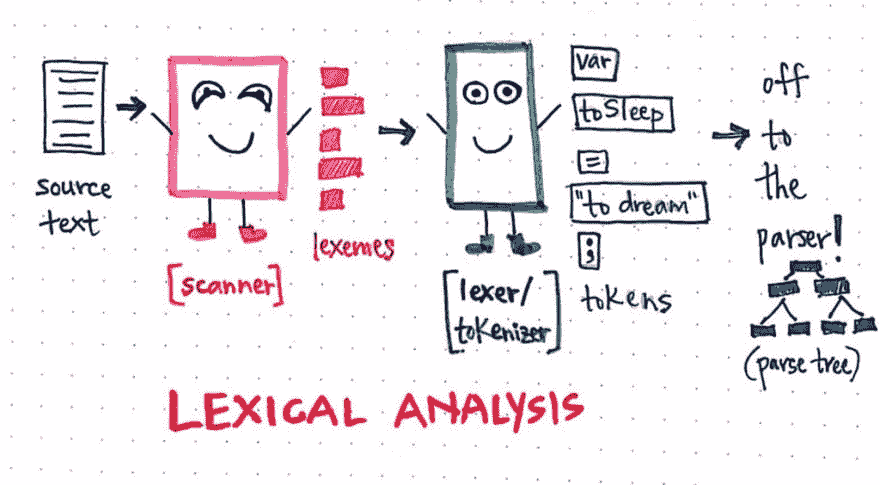 source
text
[scanner]
lexemes
[lexer/
tokenizer]
var
toSleep
=
"to dream"
;
tokens
off
to
the
parser!
(parse tree)
LEXICAL ANALYSIS